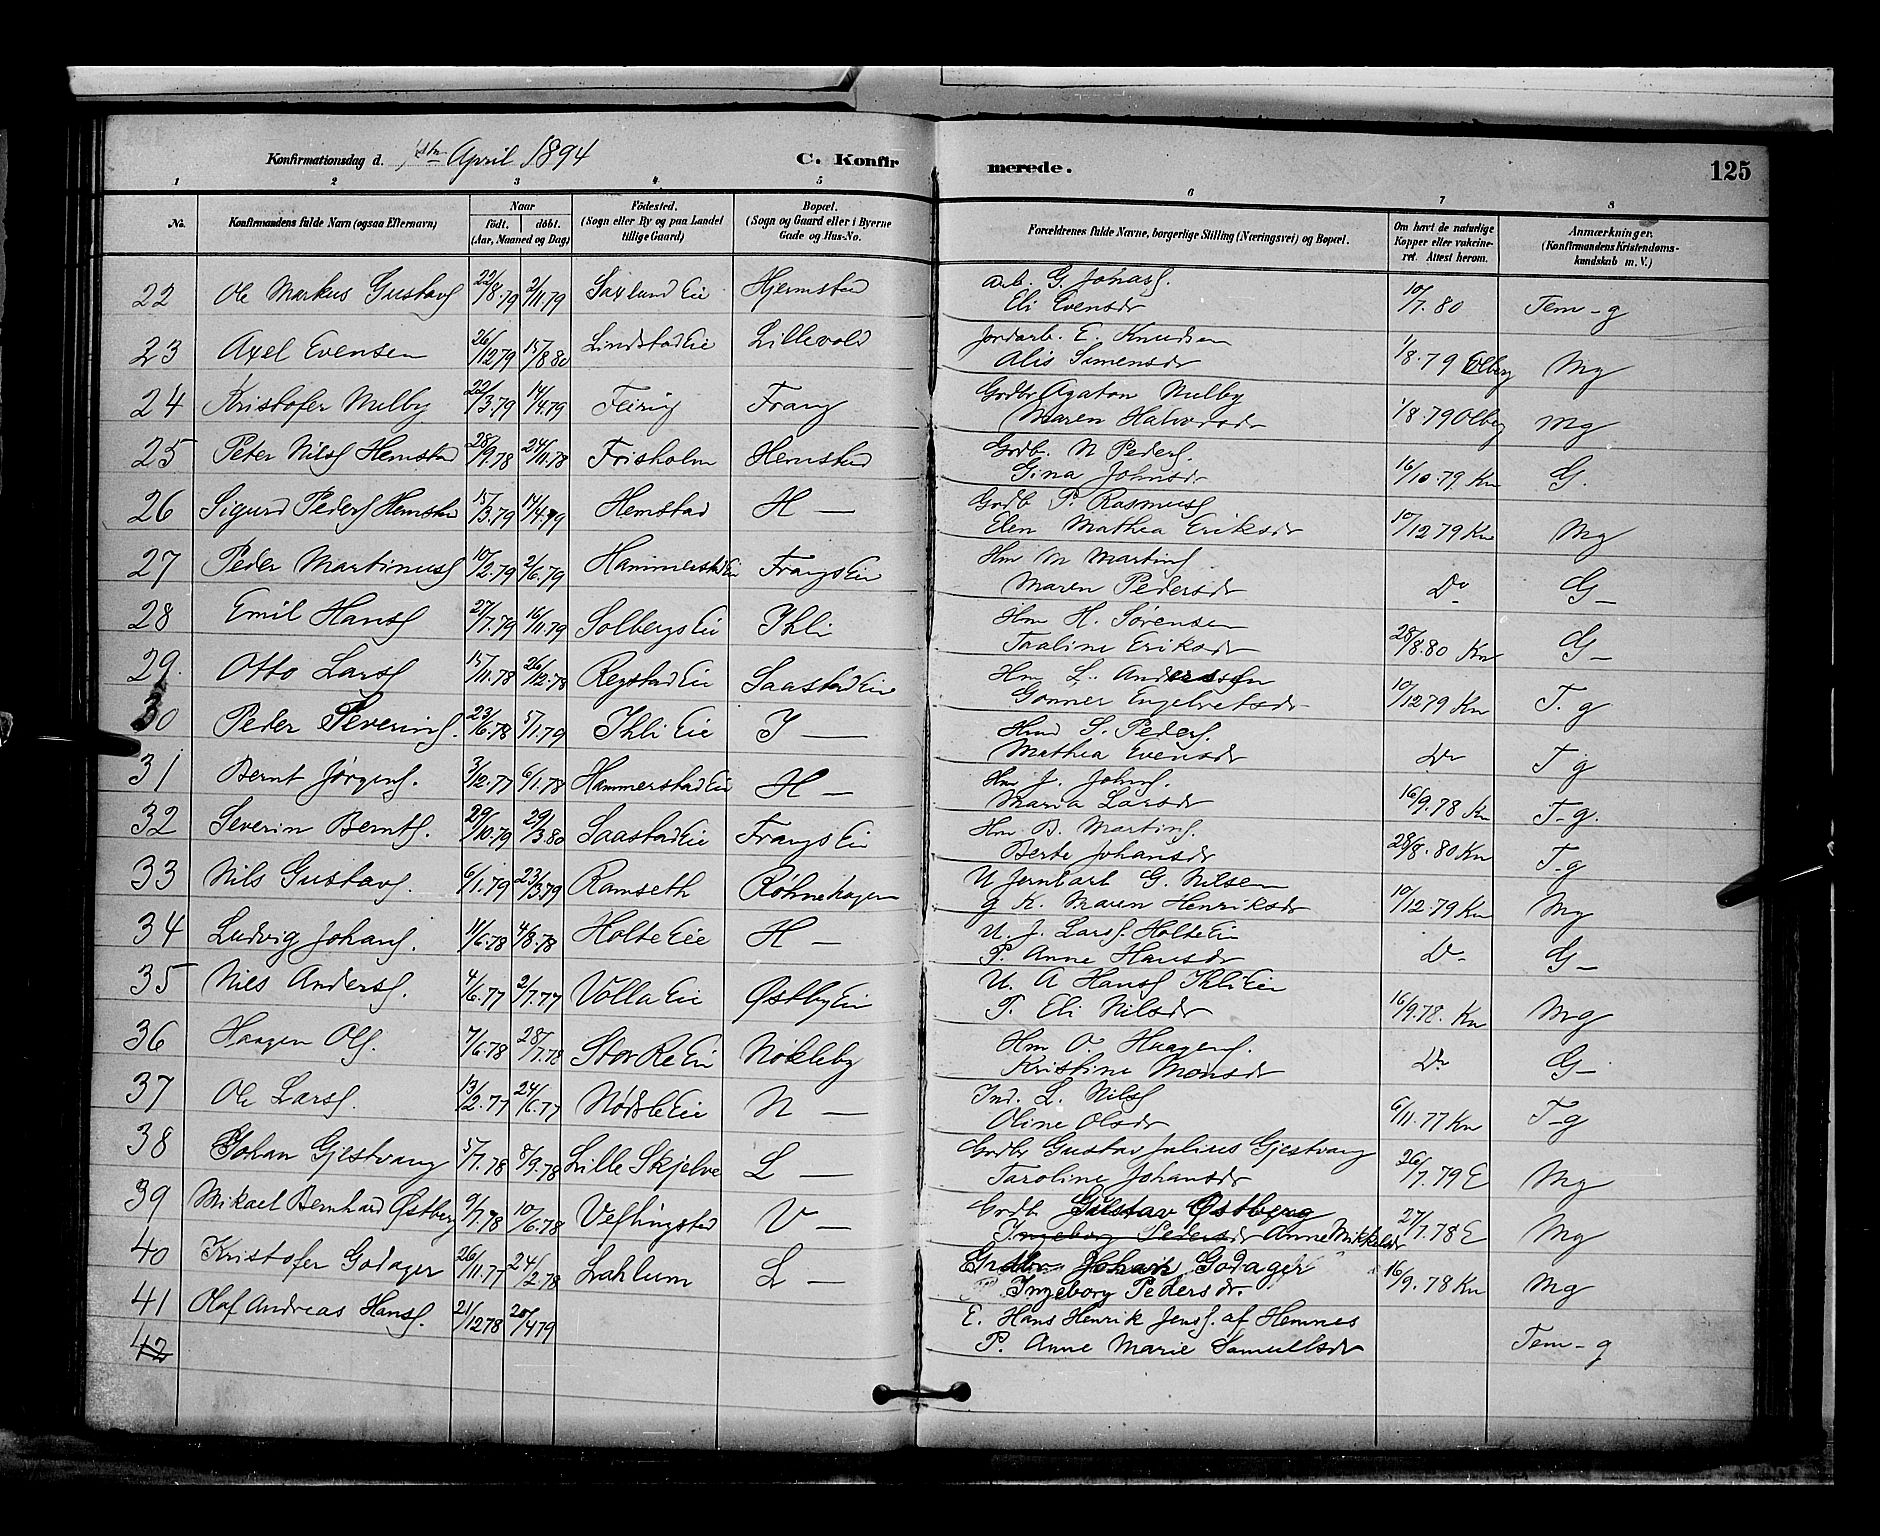 Konfirmationsdag d. 1ste April 1894 C. Konfirmerede. 125
1 2 3 4 5 6 7 8
No. Konfirmandens fulde Navn (ogsaa Efternavn) Naar født. døbt. (Aar, Maaned og Dag) Fødested. (Sogn eller By og paa Landet tillige Gaard) Bopæl. (Sogn og Gaard eller i Byerne Gade og Hus-No. Forældrenes fulde Navne, borgerlige Stilling (Næringsvei) og Bopæl. Om havt de naturlige Kopper eller vakcineret. Attest herom. Anmærkninger. (Konfirmandens Kristendomskundskab m. V.)
22 Ole Markus Gustavs. 22/8.79 2/11.79 Saxlund Eie Hjemstad Arb. G. Johans.
Eli Evensdr 10/7.80 Tem-g
23 Axel Evensen 26/12.79 15/8.80 Lindstad Eie Lillevold Jordarb. E. Knudsen
Alis Simensdr 1/8.79 Olberg Mg
24 Kristofer Melby 22/3.79 14/4.79 Feiring Frang Grdbr Agaton Melby
Maren Halvorsdr 1/8.79 Olberg Mg
25 Peter Nilss. Hemstad 28/9.78 24/11.78 Frisholm Hemstad Grdb. N Peders.
Gina Johnsdr 16/10.79 Kn G.
26 Sigurd Peders. Hemstad 15/3.79 14/4.79 Hemstad H — Grdb P. Rasmuss.
Elen Mathea Eriksdr 10/12 79 Kn Mg
27 Peder Martinuss. 10/2.79 2/6.79 Hammerstad Eie Frangs Eie Hm M Martins.
Maren Pedersdr Do G-
28 Emil Hanss. 27/7.79 16/11.79 Solbergs Eie Ihli Hm H. Sørensen
Taaline Eriksdr 28/8.80 Kn G-
29. Otto Larss. 15/11.78 26/12.78 Regstad Eie Saastad Eie Hm L. Anderssen
Gonner Engelretsdr 10/12 79 Kn T. g
30 Peder Severins. 23/6.78 5/1.79 Ihli Eie I — Hmd S. Peders.
Mathea Evensdr Do T g
31 Bernt Jørgens. 3/12.77 6/1.78 Hammerstad Eie H — Hm J. Johns.
Maria Larsdr 16/9.78 Kn T-g.
32 Severin Bernts. 29/10.79 29/3.80 Saastad Eie Frangs Eie Hm B. Martins.
Berte Johansdr 28/8.80 Kn T-g
33 Nils Gustavs. 6/1.79 23/3.79 Ramseth Rohnehagen U Jernbarb G. Nilsen
g K. Maren Henriksdr 10/12.79 Kn Mg
34 Ludvig Johans. 11/6.78 4/8.78 Holte Eie H — U. J. Larss. Holte Eie
P. Anne Hansdr Do G-
35 Nils Anderss. 4/6.77 2/7.77 Volla Eie Østby Eie U. A Hanss. Ihli Eie
P. Eli Nilsdr 16/9.78. Kn Mg
36 Haagen Ols. 7/6.78 28/7.78 Stor Re Eie Nökleby Hm O. Haagens.
Kristine Monsdr Do G-
37 Ole Larss. 13/2.77 24/6.77 Nødsle Eie N — Ind. L. Nilss.
Oline Olsdr 6/11.77 Kn T-g
38 Johan Gjestvang 5/7.78 8/9.78 Lille Skjelve L — Grdbr Gustav Julius Gjestvang
Taroline Johansdr 26/7.79 E Mg
39 Mikael Bernhard Østberg 9/7.78 10/6.78 Veflingstad V — Grdb. Gustav Østberg
Ingeborg Pedersdr Anne Mikkelsdr 27/7.78 E Mg
40 Kristofer Godager 26/11.77 24/2.78 Lahlum L — Grdbr Johan Godager
Ingeborg Pedersdr. 16/9.78 Kn Mg
41 Olaf Andreas Hanss. 21/12 78 20/4 79 E. Hans Henrik Jenss. af Hemnes
42 P. Anne Marie Samuelsdr Tem-g